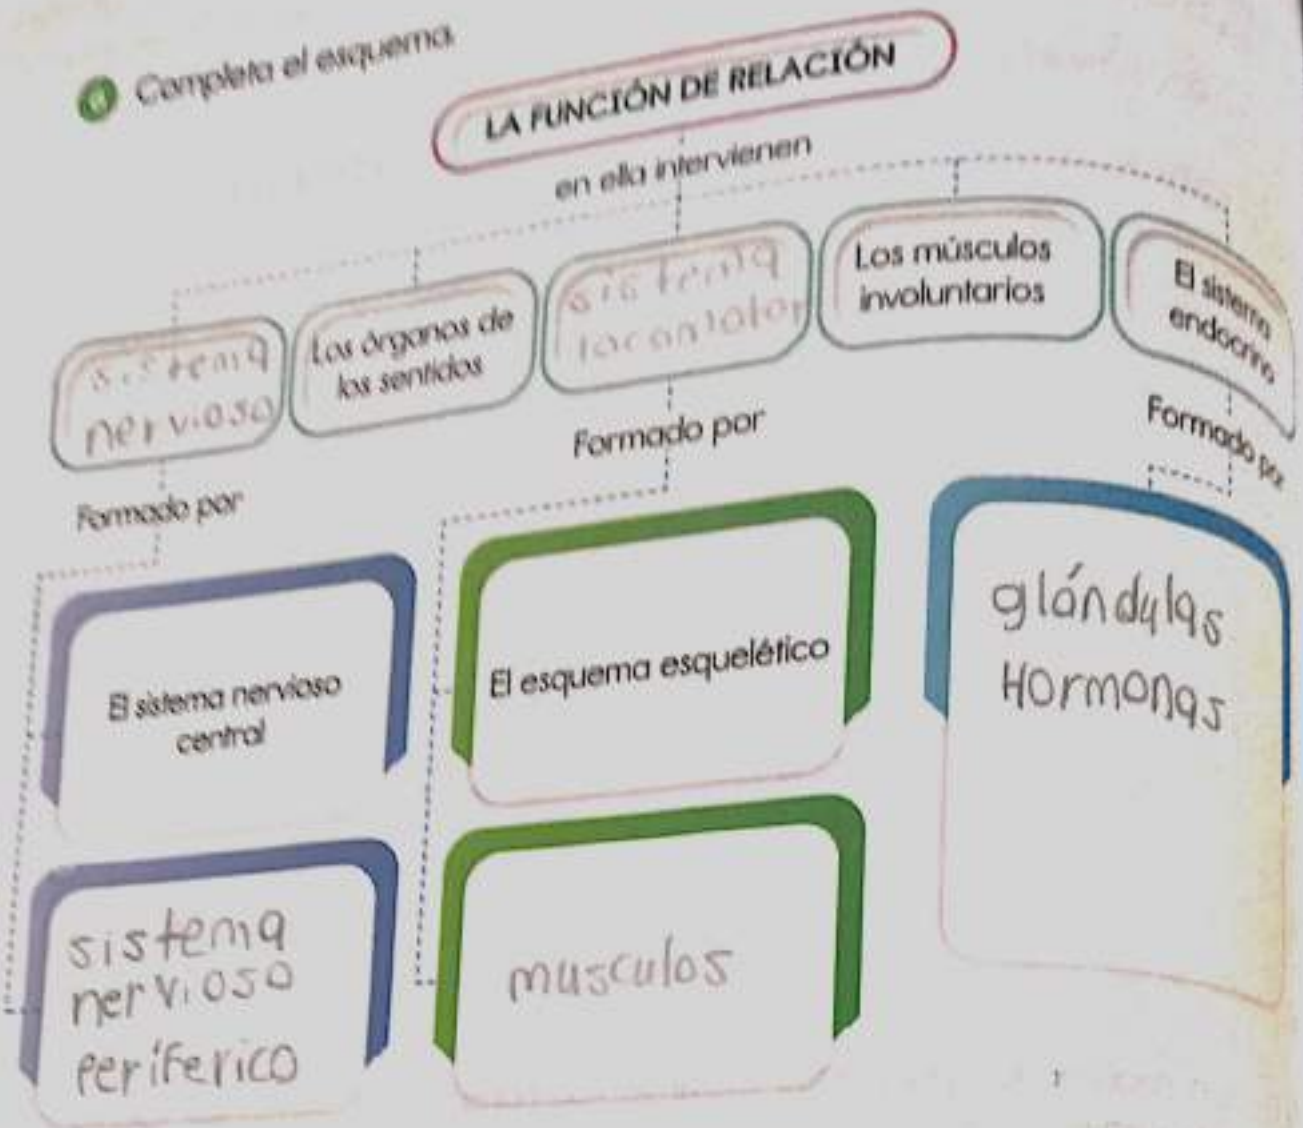 Completa el esquema.
LA FUNCIÓN DE RELACIÓN
en ella intervienen
sistema
nervioso
Los órganos de
los sentidos
sistema
locomotor
Los músculos
involuntarios
El sistema
endocrino
Formado por
Formado por
Formado por
El sistema nervioso
central
El esquema esquelético
glándulas
Hormonas
sistema
nervioso
períferico
musculos